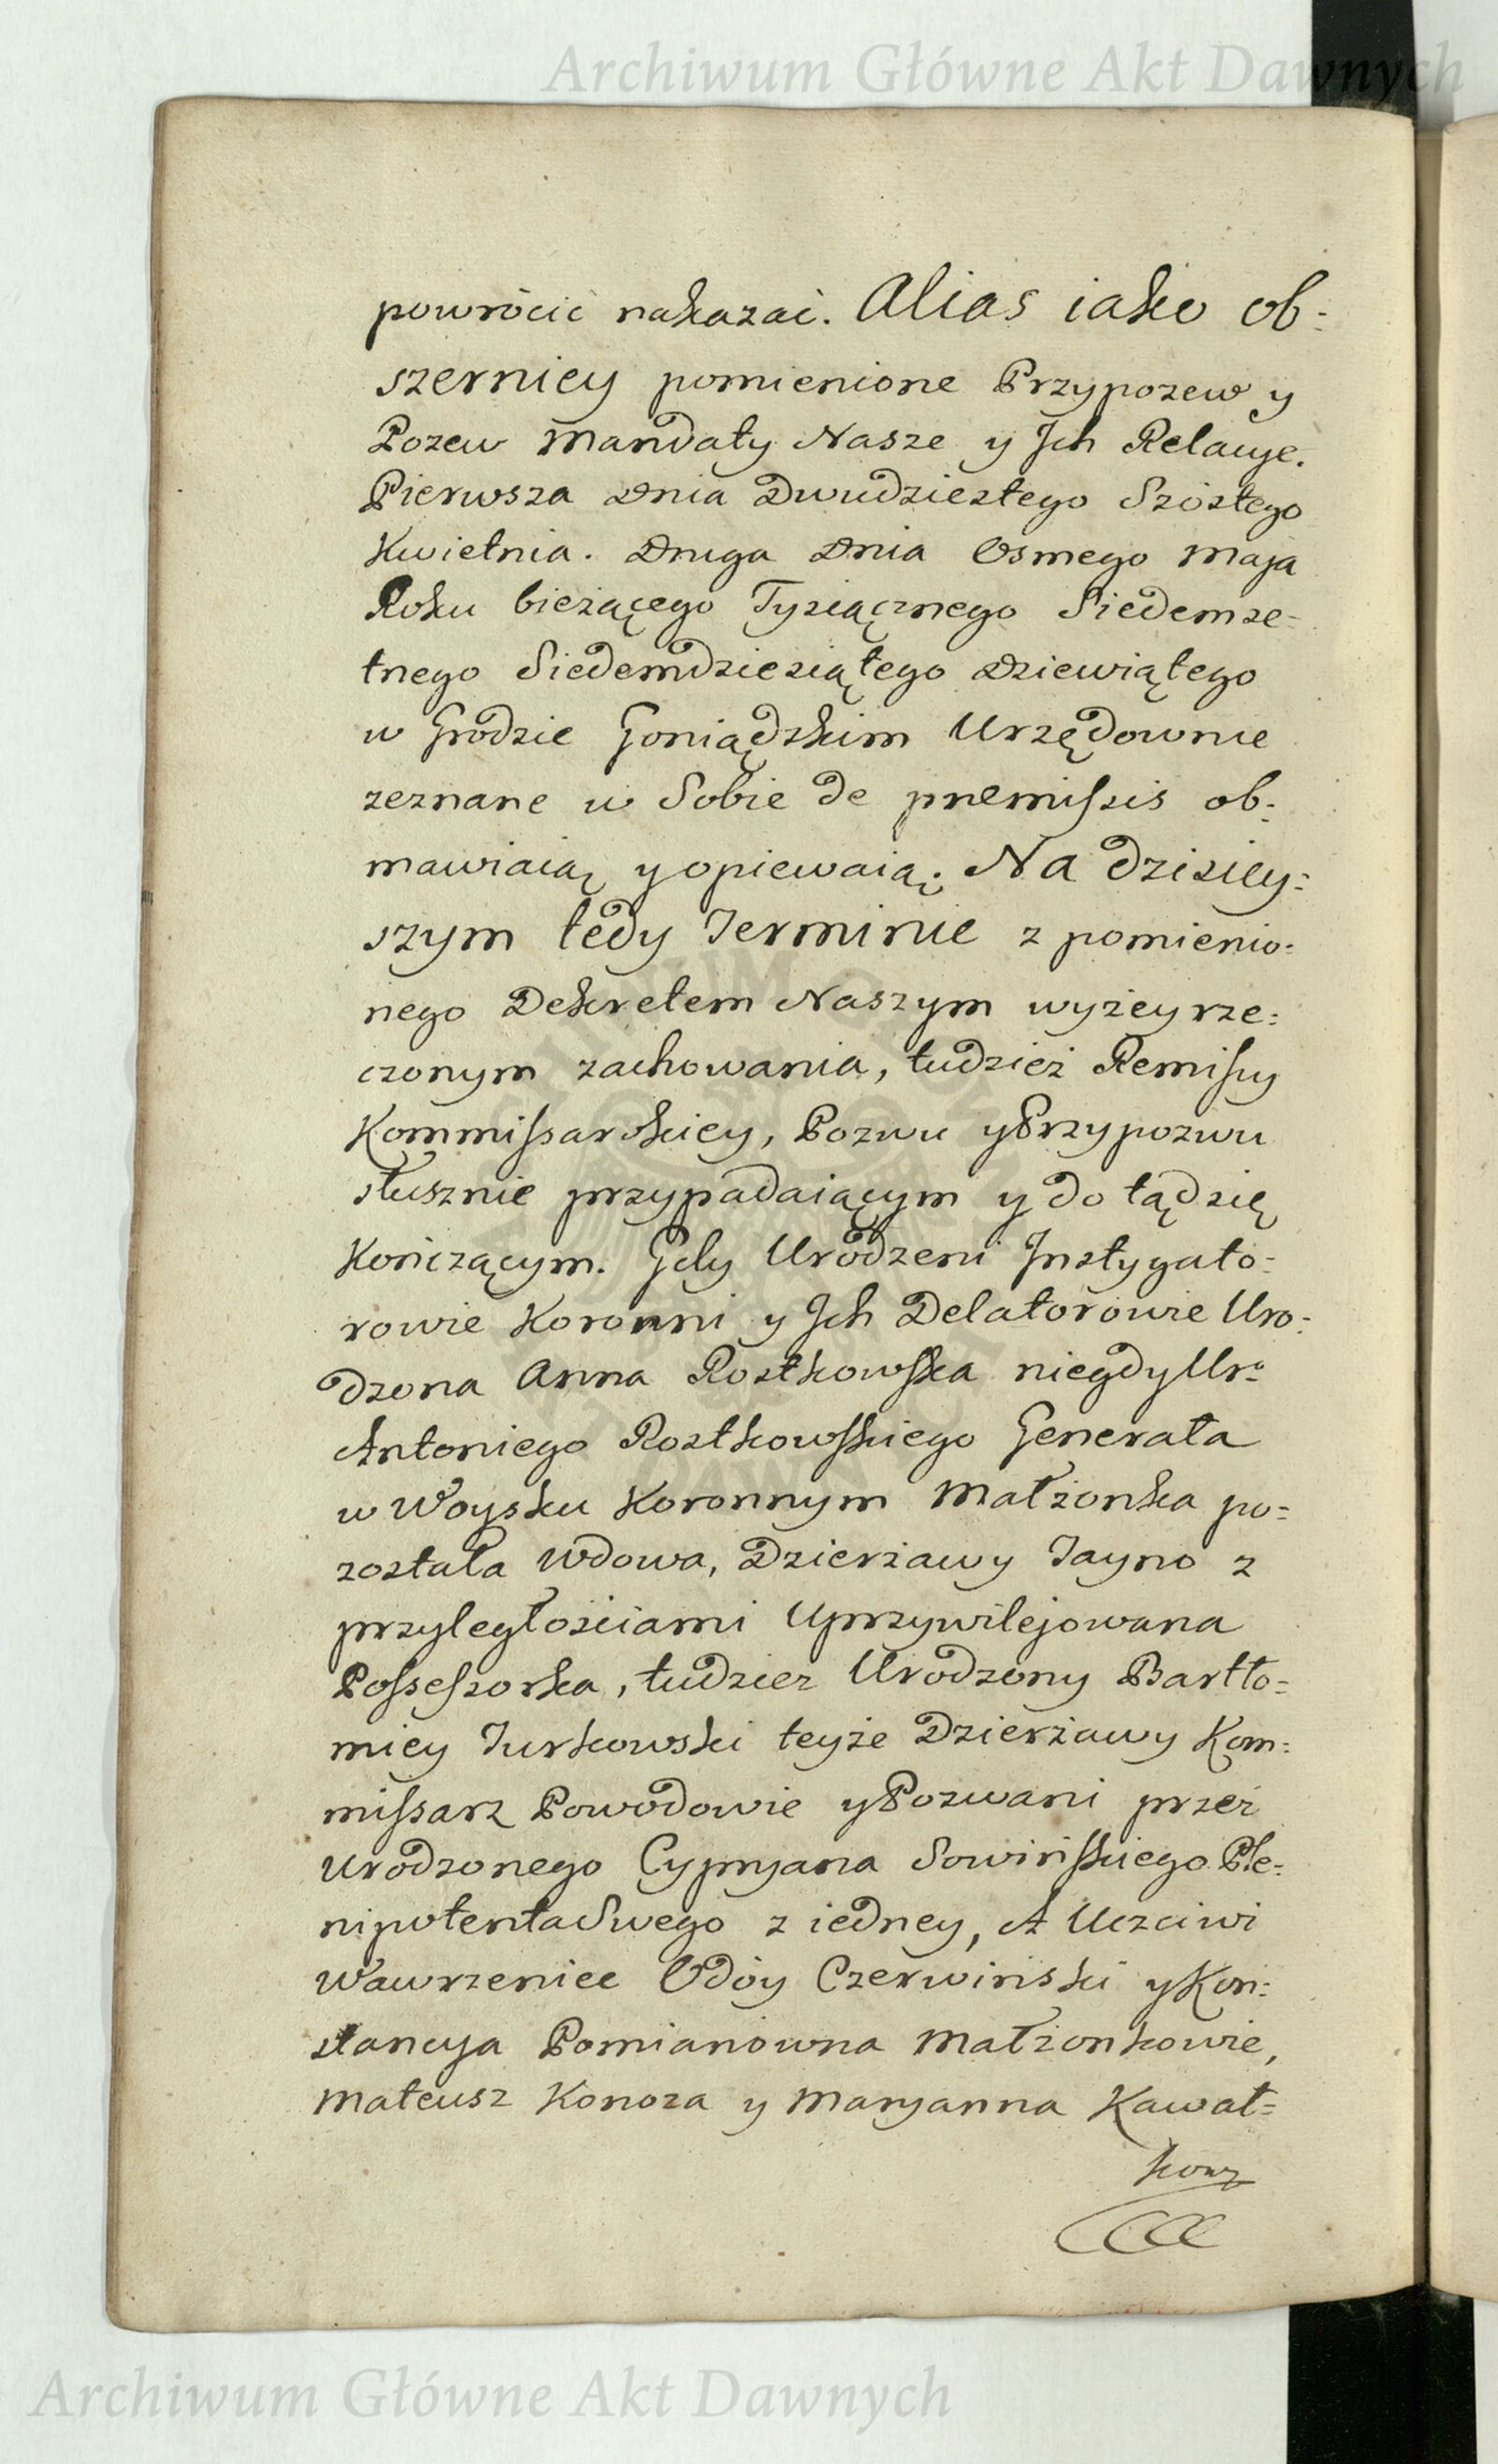 Archiwum Główne Akt Dawnych
powrócić nakazać. Alias iako ob:
szerniey pomienione Przypozew y
Pozew Mandaty Nasze y Jch Relacye.
Pierwsza Dnia Dwudziestego Szóstego
Kwietnia. Druga Dnia Osmego Maja
Roku bieżącego Tysiącznego Siedemse-
tnego Siedemdziesiątego Dziewiątego
w Grodzie Goniądzkim Urzędownie
zeznane w Sobie de premissis ob:
mawiaią y opiewaią. Na dzisiey:
szym tedy Terminie z pomienio:
nego Dekretem Naszym wyżey rze:
czonym zachowania, tudzież Remissy
Kommissarskiey, Pozwu y Przypozwu
słusznie przypadaiącym y do tąd się
Kończącym. Gdy Urodzeni Jnstygato:
rowie Koronni y Jch Delatorowie Uro:
dzona Anna Rostkowska niegdy Ur°
Antoniego Rostkowskiego Generała
w Woysku Koronnym Małżonka po:
została Wdowa, Dzierżawy Jayno z
przyległościami Uprzywilejowana
Possessorka, tudzież Urodzony Bartło:
miey Turkowski teyże Dzierżawy Kom:
missarz Powodowie y Pozwani przez
Urodzonego Cypryana Sowińskiego Ple:
nipotenta Swego z iedney, A Uczciwi
Wawrzeniec Odóy Czerwiński y Kon:
stancya Pomianówna Małżonkowie,
Mateusz Konoza y Maryanna Kawał=
kow
Archiwum Główne Akt Dawnych